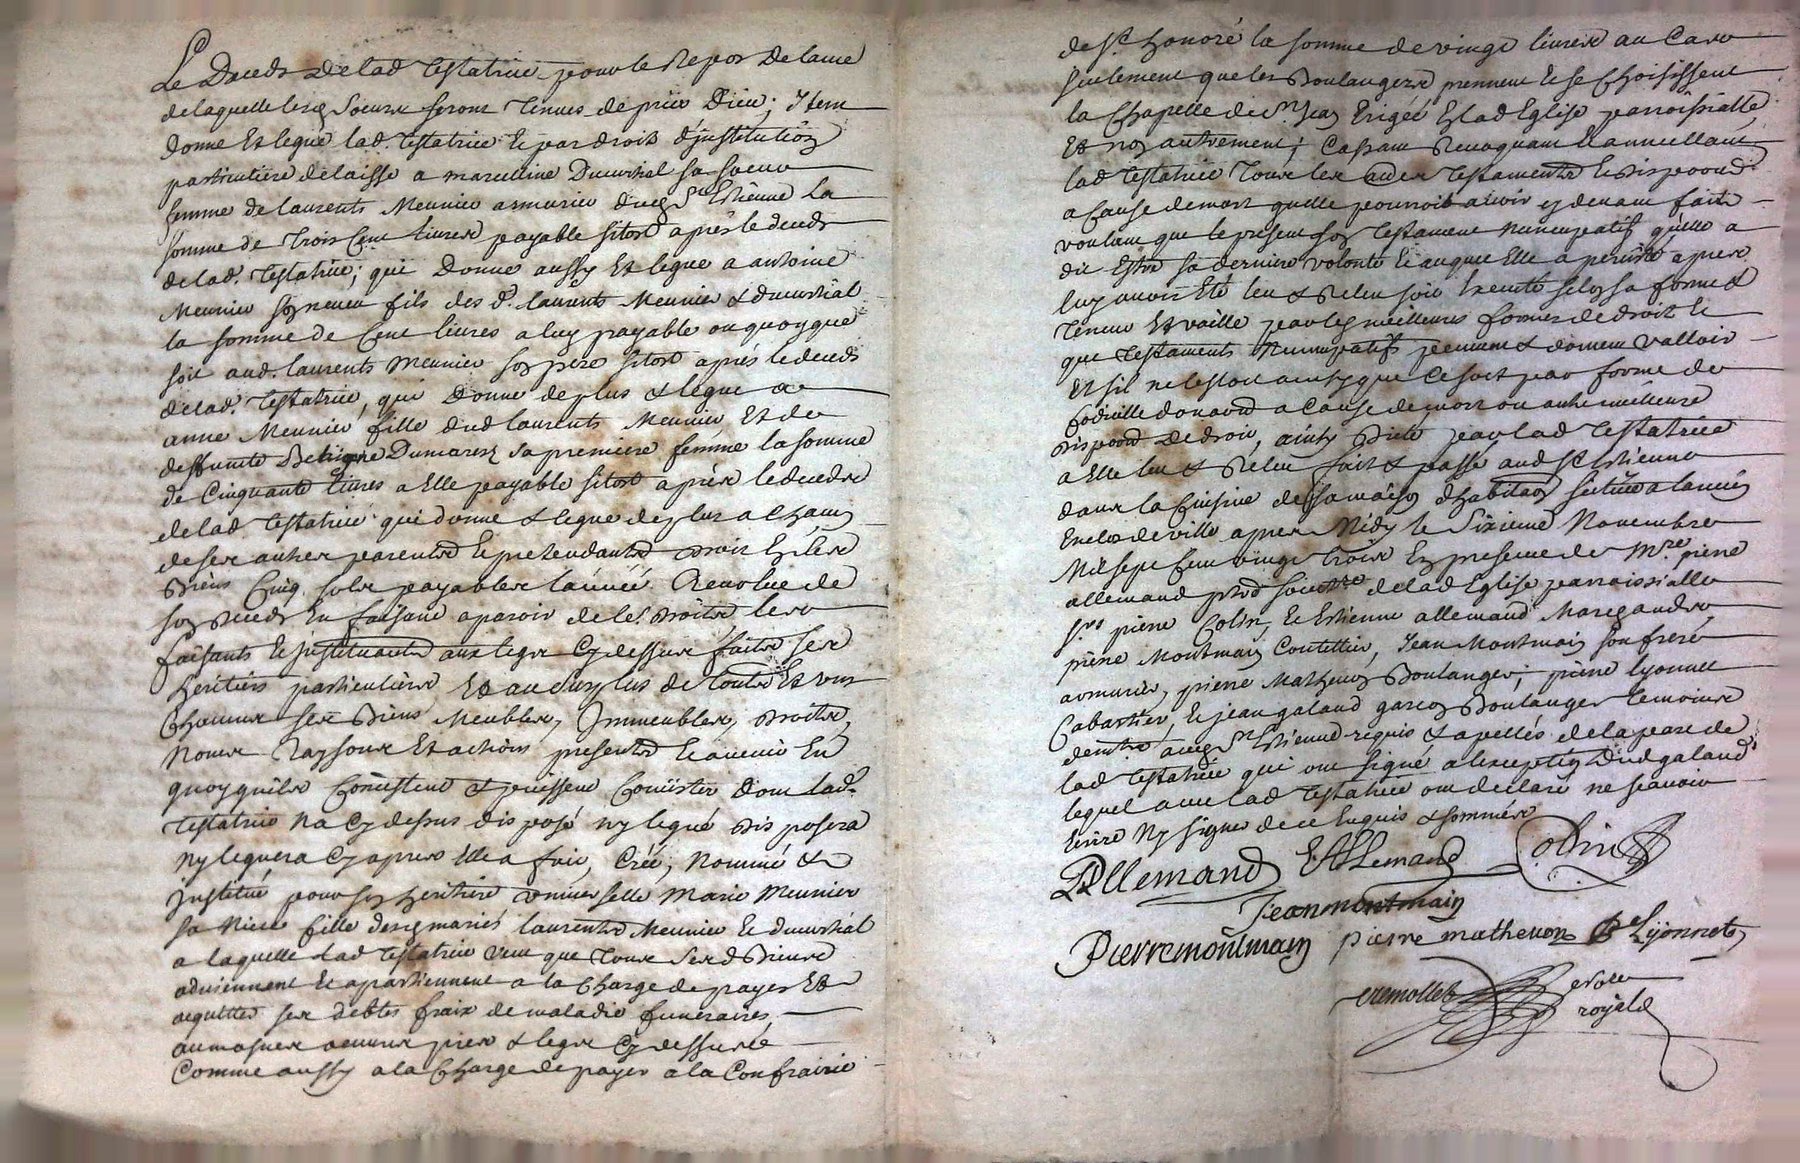 Le Deceds de lad testatrice pour le Repos de lame
de laquelle lesd Soeurs seront tenues de prier Dieu ; Item
donne et legue lad. testatrice et par droit d'institution
particuliere delaisse a marcelline Ducurtial sa soeur
femme de laurents Meunier armurier dud St Estienne la
somme de trois cent livres payable sitost aprés le deceds
de lad. testatrice ; qui donne aussy et legue a antoine
Meunier son neveu fils des d. laurents Meunier & ducurtial
la somme de cent livres a luy payable ou quoyque
soit aud. laurents Meunier son pere sitost aprés le deceds
de lad. testatrice, qui donne de plus & legue a
anne Meunier fille dud laurents Meunier et de
deffunte Dumarest sa premiere femme la somme
de Cinquante livres a Elle payable sitost aprés le deceds
de lad. testatrice qui donne & legue de plus a chacun
de ses autres parents et pretendants droit En ses
Biens Cinq sols payables lannée Revolue de
son deceds En faisant aparoir de le. droits, les
faisants et instituants aux legs Cy dessus faits ses
heritiers particuliers Et au surplus de touts Et uns
Chacuns ses Biens Meubles, Immeubles, droits,
Noms Raysons Et actions presents Et avenir En
quoy quils Consistent & puissent Consister dont lad.
testatrice na Cy dessus disposé ny legué disposera
ny leguera Cy apres Elle a fait, Créé, Nommé &
institué pour son heritiere universelle Marie Meunier
sa Niece fille desd mariés laurents Meunier et ducurtial
a laquelle lad testatrice veut que tous sesd Biens
adviennent et apartiennent a la Charge de payer Et
aquitter ses debtes fraix de maladie funeraires,
aumosnes oeuvres pies & legs Cy dessus
Comme aussy a la Charge de payer a la Confrairie
de St honoré la somme de vingt livres au Cas
seulement que les Boulangers prennent et se Choisissent
la Chapelle de St Jean Erigée En lad Eglise parroissialle
Et non autrement ; Cassant Revoquant & annullant
lad testatrice tous les autres testaments et dispoons
a Cause de mort quelle pourroit avoir cy devant faits
voulant que le present son testament nuncupatif quelle a
dit Estre sa derniere volonté et auquel Elle a persisté apres
luy avoir Eté leu & Releu soit Executé selon sa forme &
teneur Et vaille par les meilleures formes de droit et
que testaments Nuncupatifs peuvent & doivent valloir
Et sil ne lestoit ainsy que ce soit par forme de
Codicille donaon a Cause de mort ou autre meilleure
dispoon de droit, ainsy dicté par lad testatrice
a Elle leu & Releu fait & passé aud St Estienne
dans la Cuisine de sa maison d'habitaon située a lancien
Enclos de ville apres Midy le Sixieme Novembre
Mil sept Cent vingt trois En presence de Mre pierre
allemand de lad Eglise parroissialle
Srs pierre Colin, et Estienne allemand Marchands,
pierre Montmain Coutellier, Jean Montmain son frere
armurier, pierre Mathevon Boulanger, pierre lyonnet
Cabartier, et jean galand garcon Boulanger temoins
aud St Estienne requis & apellés de la part de
lad testatrice qui ont signé a lexception dud galand
lequel avec lad testatrice ont declaré ne scavoir
Ecrire Ny signer de ce Enquis & sommés
P Allemand E Allemand Colin
Jean montmain
Pierre montmain pierre mathevon P Lÿonnet
cremollet
royal